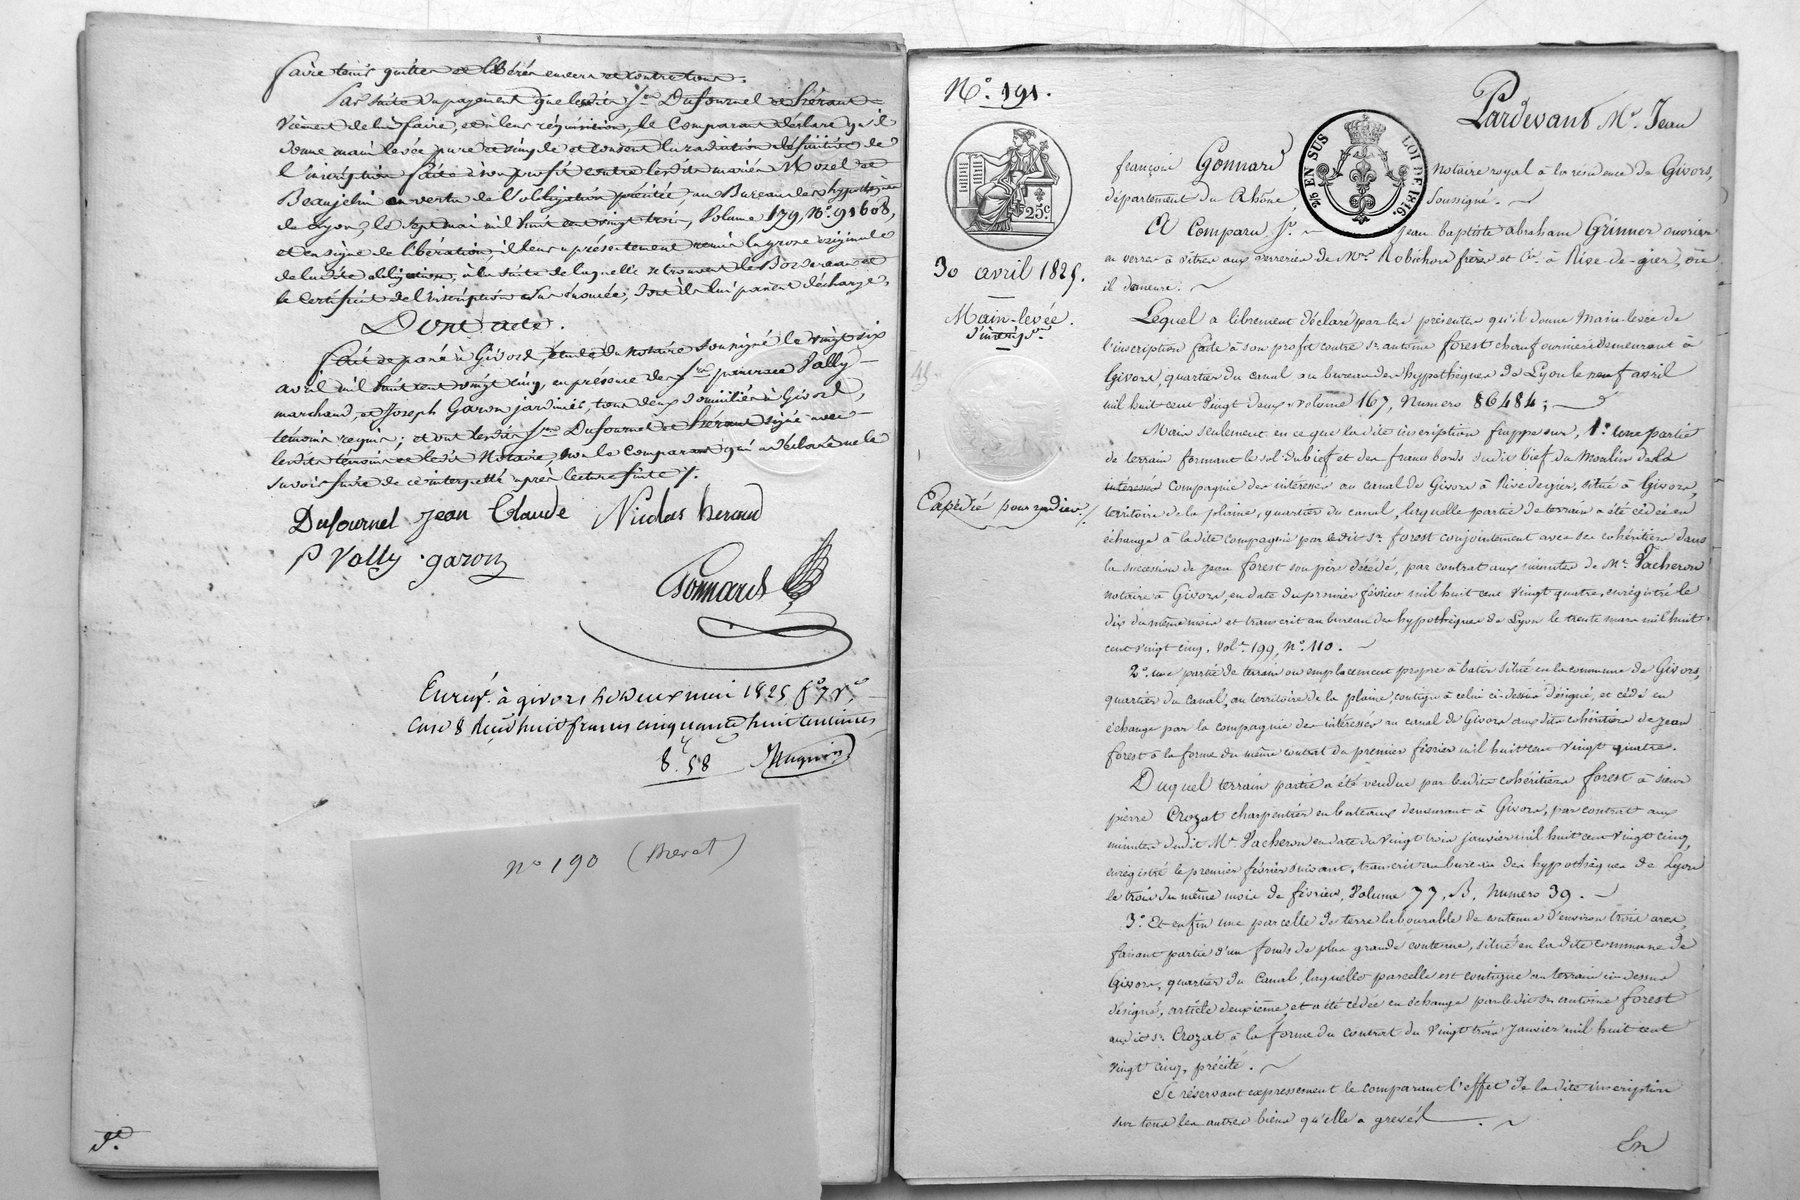 faire tenir quittes et libérés envers et contre tous.
Par suite du payement que lesdits Srs Dufournel et Héraud
viennent de lui faire, et à leur réquisition, le comparant déclare qu'il
donne main levée pure et simple et consent la radiation définitive de
l'inscription faite à son profit contre lesdits mariés Mozel et
Beaujelin en vertu de l'obligation précitée, au Bureau des hypothèques
de Lyon, le sept mai mil huit cent vingt trois, Volume 179, No. 91608,
et en signe de libération, il leur a présentement remis la grosse originale
de ladite obligation, à la suite de laquelle se trouvent le Bordereau et
le certificat de l'inscription sus énoncée, dont ils lui passent décharge.
Dont acte.
Fait et passé à Givors, étude du notaire soussigné le vingt six
avril mil huit cent vingt cinq, en présence des Srs Vally
marchand, et Joseph Garon jardinier, tous deux domiciliés à Givors,
témoins requis; et ont lesdits Srs Dufournel et Héraud signé avec
lesdits témoins et ledit Notaire, non le comparant qui a déclaré ne le
savoir faire de ce interpellé après lecture faite /.
Dufournel Jean Claude Nicolas heraud
P Vally garon
Gonnard
Enregé. à givors le Deux mai 1825 fo 7 Vo.
Case 8 Reçu huit francs cinquante huit centimes
8. 58
no 190 (Brevet)
No. 191.
25c
30 avril 1825.
Main-levée
d'inscripon.
45
Expédié pour radier /.
Pardevant Me. Jean
2/5 EN SUS LOI DE 1816.
françois Gonnard notaire royal à la résidence de Givors,
département du Rhône, soussigné.
A Comparu Sr. Jean baptiste abraham Grinner ouvrier
en verres à vitres aux verreries de Mrs. Robichon frères et Cie. à Rive-de-gier, où
il demeure.
Lequel a librement déclaré par les présentes qu'il donne Main-levée de
l'inscription faite à son profit contre Sr. antoine forest chaufournier demeurant à
Givors, quartier du canal au bureau des hypothèques de Lyon le neuf avril
mil huit cent vingt deux, volume 167, Numero 86484;
Mais seulement en ce que la dite inscription frappe sur, 1o. une partie
de terrain formant le sol du bief et des francs bords dudit bief du Moulin de la
intéressés Compagnie des intéressés au canal de Givors à Rive de gier, situé à Givors,
territoire de la plaine, quartier du canal, laquelle partie de terrain a été cédée en
échange à ladite compagnie par ledit Sr. forest conjointement avec ses cohéritiers dans
la succession de jean forest son père décédé, par contrat aux minutes de Me. Vacheron
notaire à Givors, en date du premier février mil huit cent vingt quatre, enrégistré le
dix du même mois et transcrit au bureau des hypothèques de Lyon le trente mars mil huit
cent vingt cinq, vole. 199, No. 110.
2o. une partie de terrain ou emplacement propre à batir situé en la commune de Givors,
quartier du canal, au territoire de la plaine, contigu à celui ci-dessus désigné, et cédé en
échange par la compagnie des intéressés au canal de Givors auxdits cohéritiers de jean
forest à la forme du même contrat du premier février mil huit cent vingt quatre.
Duquel terrain partie a été vendue par lesdits cohéritiers forest à sieur
pierre Crozat charpentier en bateaux demeurant à Givors, par contrat aux
minutes dudit Me. Vacheron en date du vingt trois janvier mil huit cent vingt cinq,
enregistré le premier février suivant, transcrit au bureau des hypothèques de Lyon
le trois du même mois de février, Volume 77, B, numero 39.
3o. Et enfin une parcelle de terre labourable de contenue d'environ trois ares,
faisant partie d'un fonds de plus grande contenue, situé en la dite commune de
Givors, quartier du Canal, laquelle parcelle est contigue au terrain ci-dessus
désigné, article deuxième, et a été cédée en échange par ledit Sr. antoine forest
audit Sr. Crozat à la forme du contrat du vingt trois Janvier mil huit cent
vingt cinq, précité.
Se réservant expressement le comparant l'effet de la dite inscription
sur tous les autres biens qu'elle a grevés.
En